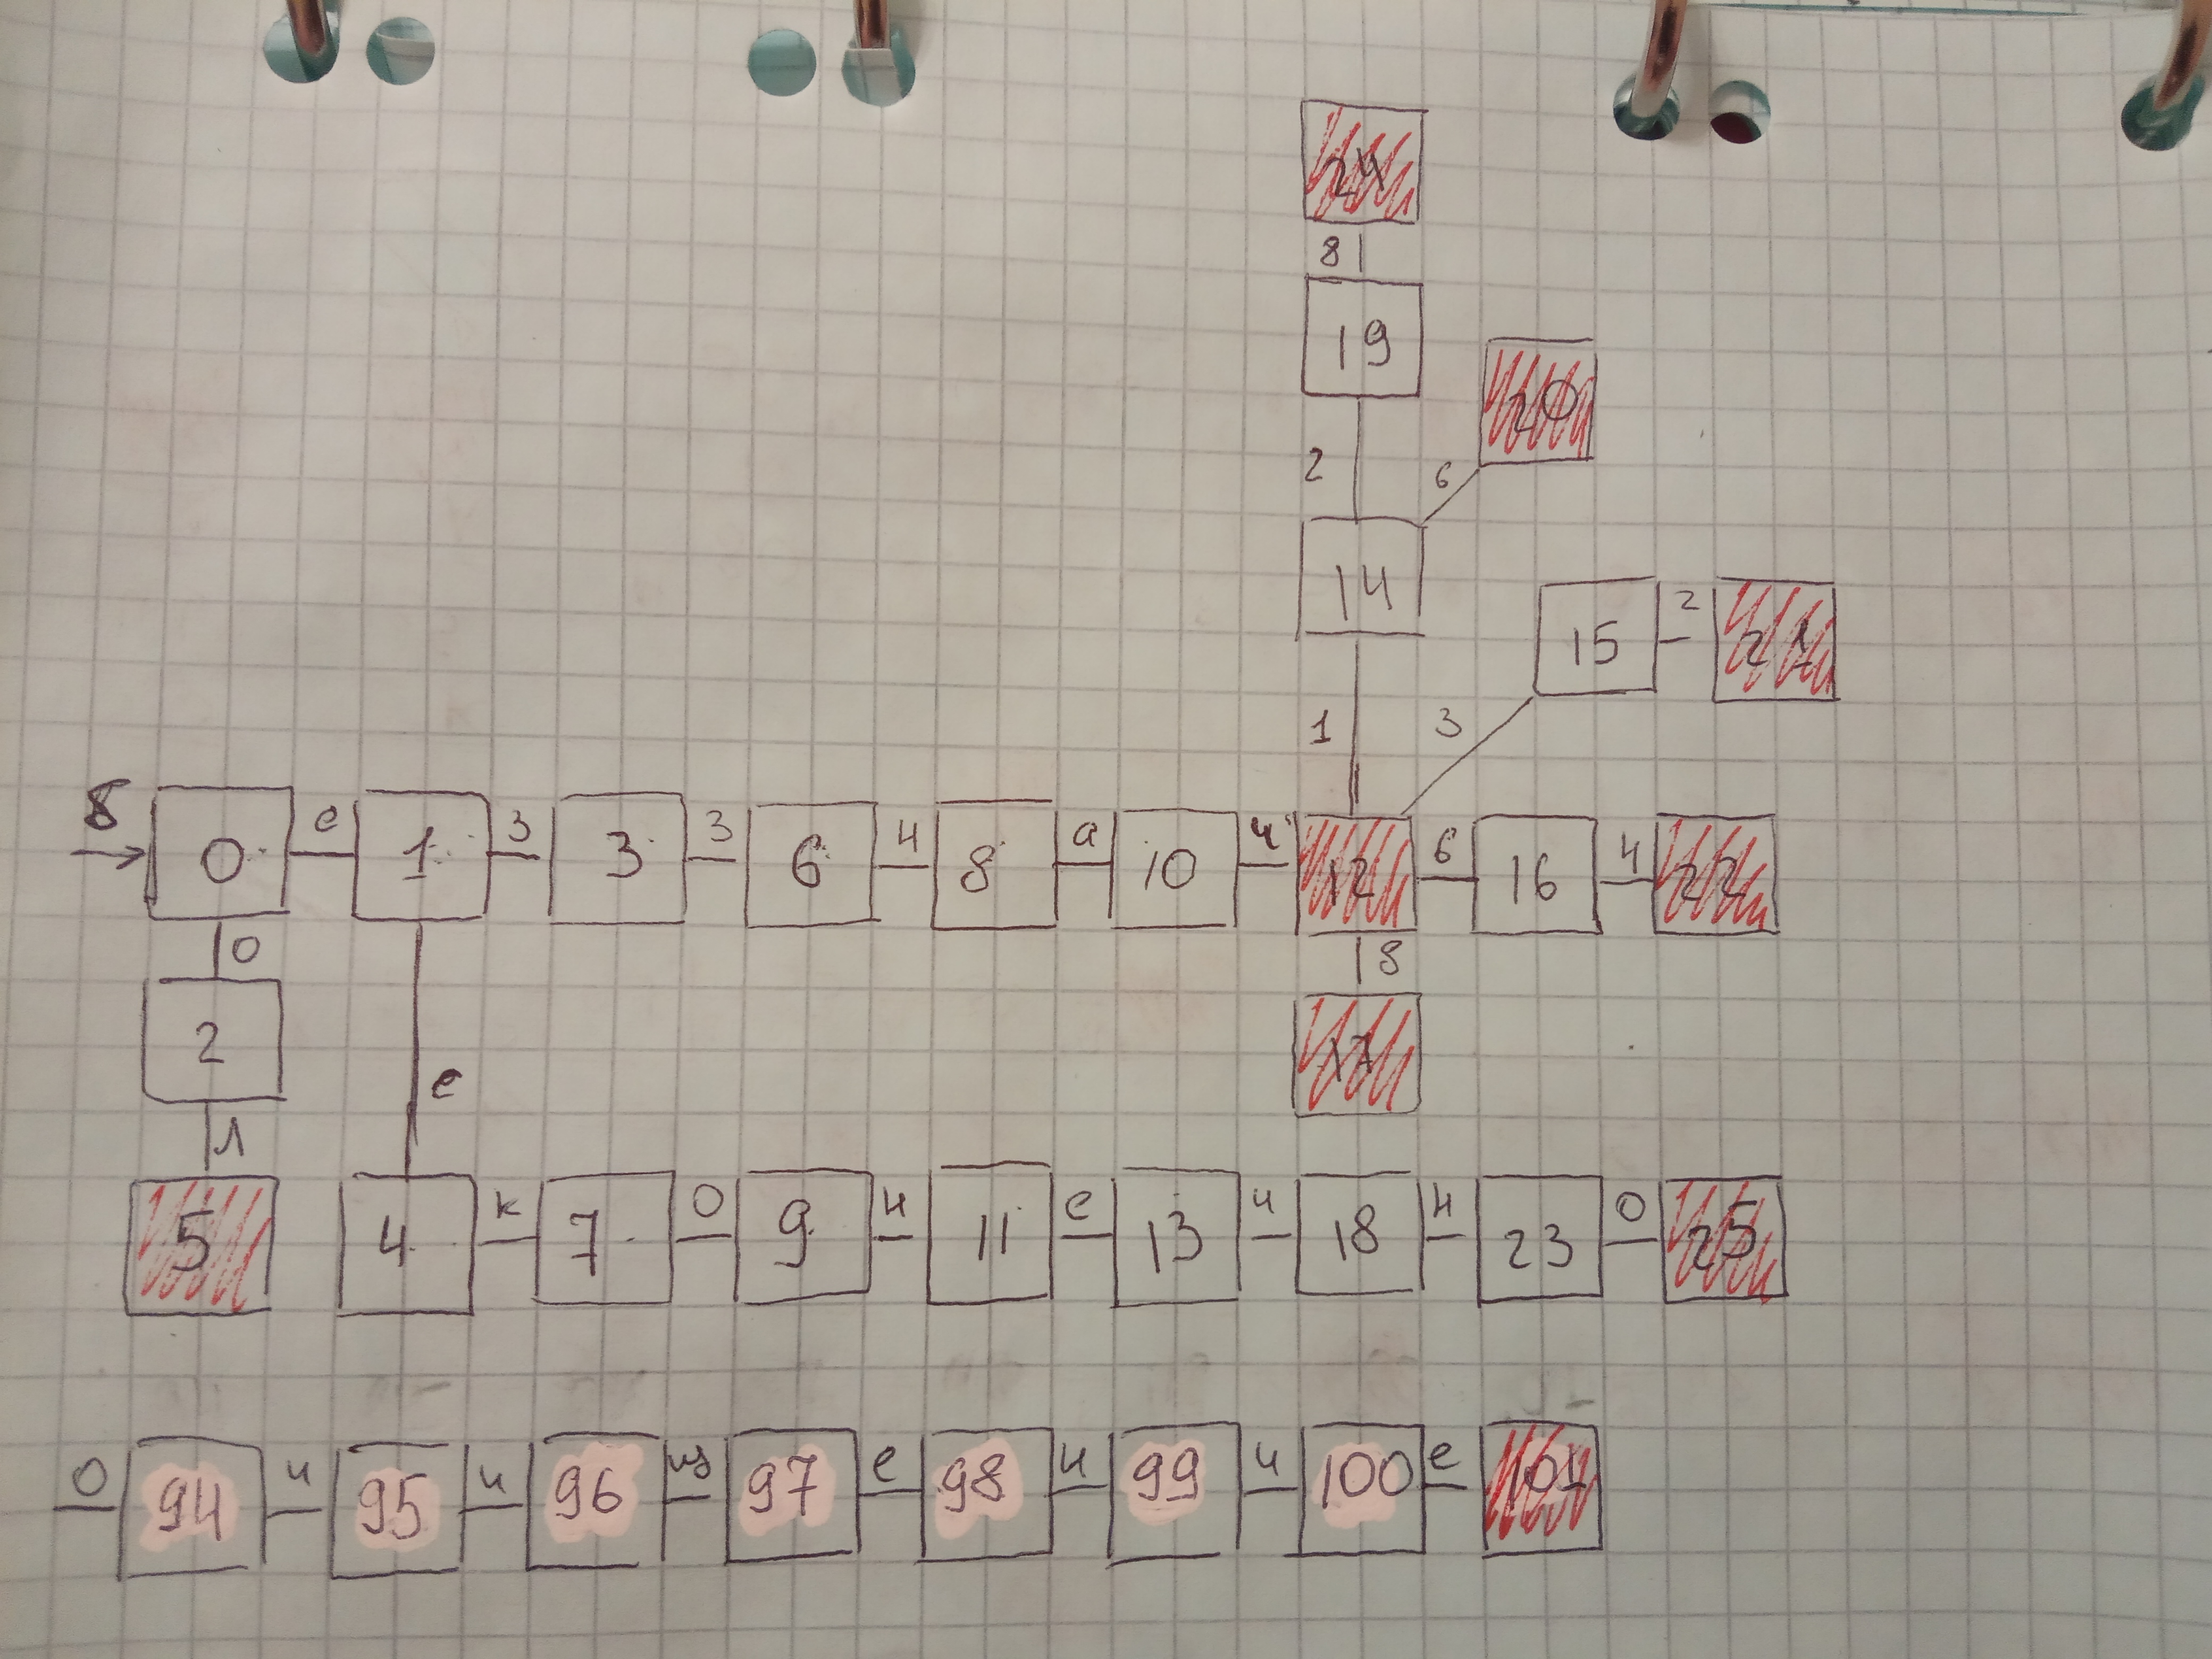 24
8
19
20
2 6
14
15 2 21
1 3
б 0 е 1 з 3 з 6 н 8 а 10 ч 12 6 16 4 22
0 8
2 17
е
л
5 4 к 7 о 9 н 11 е 13 ч 18 н 23 о 25
о 94 ч 95 и 96 щ 97 е 98 н 99 и 100 е 101